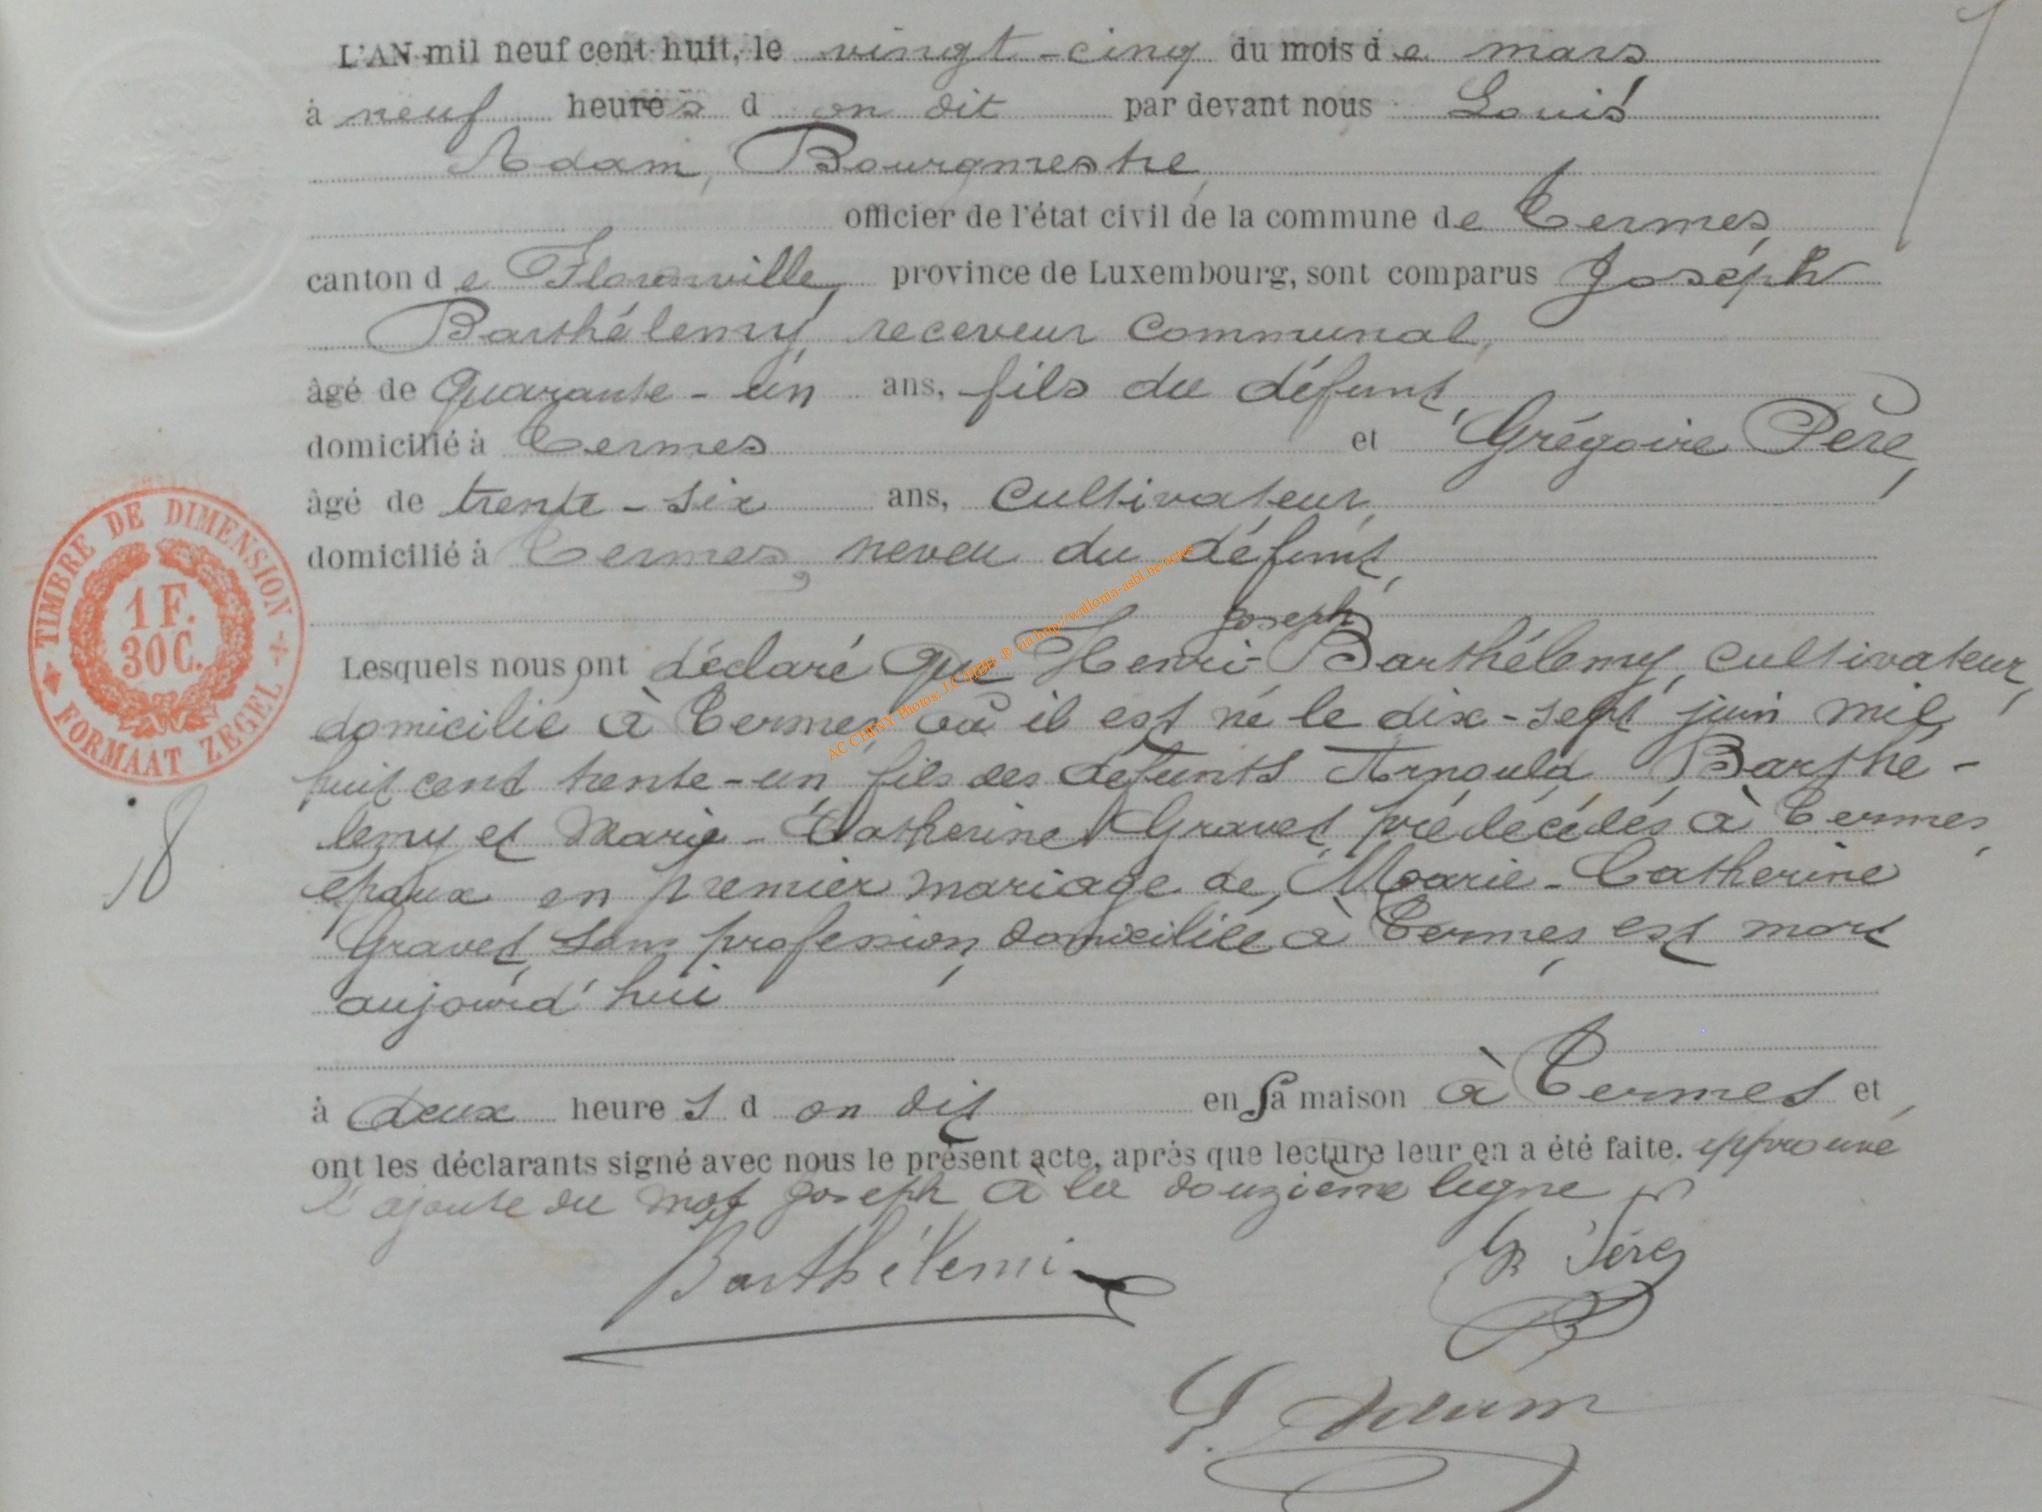 L'AN mil neuf cent huit, le vingt-cinq du mois de mars
à neuf heures d on dit par devant nous Louis
Adam, Bourgmestre,
officier de l'état civil de la commune de Termes,
canton de Florenville, province de Luxembourg, sont comparus Joseph
Barthélemy, receveur communal,
âgé de quarante-un ans, fils du défunt,
domicilié à Termes et Grégoire Père,
âgé de trente-six ans, cultivateur,
domicilié à Termes, neveu du défunt,
Joseph
Lesquels nous ont déclaré que Henri-Barthélemy, cultivateur,
domicilié à Termes, où il est né le dix-sept juin mil
huit cent trente-un, fils des défunts Arnould Barthé-
lemy et Marie-Catherine Gravet, prédécédés à Termes,
époux en premier mariage de Marie-Catherine
Gravet, sans profession, domiciliée à Termes, est mort
aujourd'hui
à deux heures d on dit en Sa maison à Termes et
ont les déclarants signé avec nous le présent acte, après que lecture leur en a été faite. approuvé
l'ajoute du mot Joseph à la douzième ligne
Barthélemi
G Père
L. Adam
TIMBRE DE DIMENSION
1 F.
30 C.
FORMAAT ZEGEL
18
AC CHINY Photos: via http://wallonia-asbl.be/actes